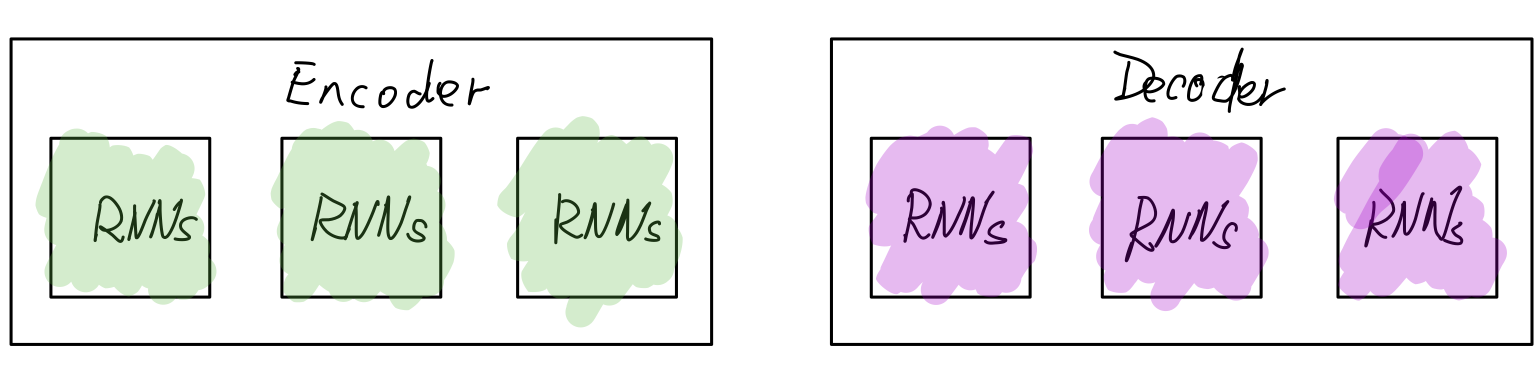 Encoder
RNNs
RNNs
RNNs
Decoder
RNNs
RNNs
RNNs